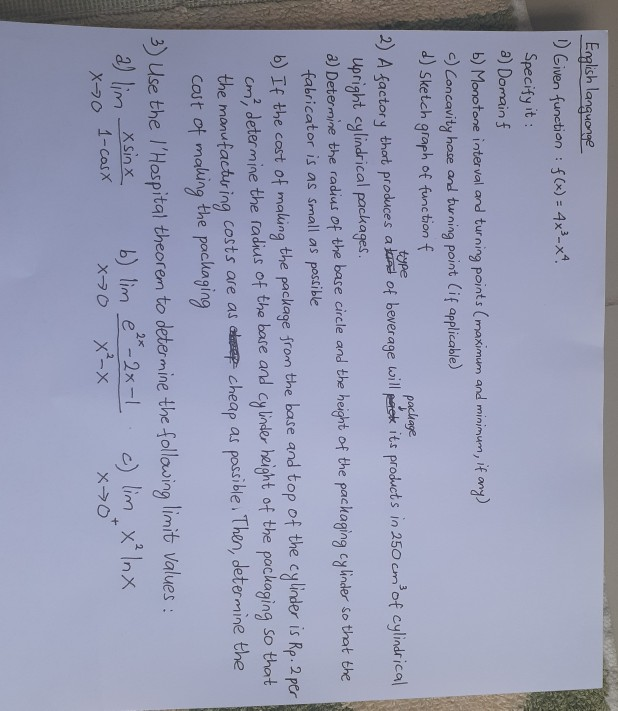 English languange
1) Given function : f(x) = 4x³-x⁴.
Specify it :
a) Domain f
b) Monotone interval and turning points (maximum and minimum, if any)
c) Concavity base and turning point (if applicable)
d) Sketch graph of function f
2) A factory that produces a type of beverage will package its products in 250 cm³ of cylindrical
Upright cylindrical packages.
a) Determine the radius of the base circle and the height of the packaging cylinder so that the
fabricator is as small as possible
b) If the cost of making the package from the base and top of the cylinder is Rp. 2 per
cm², determine the radius of the base and cylinder height of the packaging so that
the manufacturing costs are as cheap as possible. Then, determine the
cost of making the packaging
3) Use the l'Hospital theorem to determine the following limit values :
a) lim x→0 x sin x / 1-cos x b) lim x→0 e²ˣ-2x-1 / x²-x . c) lim x→0⁺ x² ln x